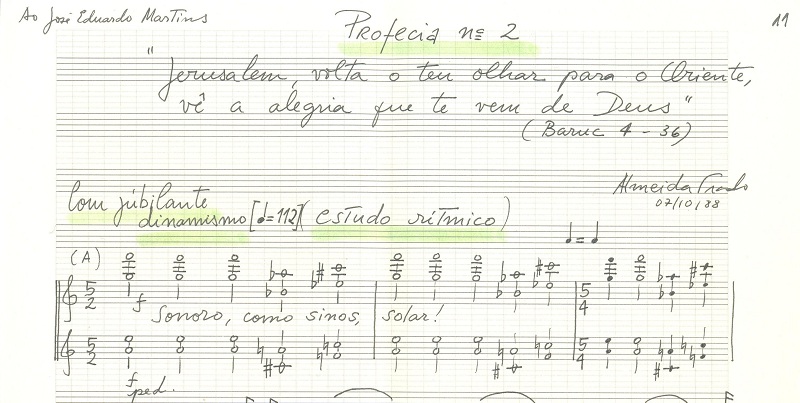 Ao José Eduardo Martins
Profecia nº 2
11
"Jerusalem, volta o teu olhar para o Oriente,
vê a alegria que te vem de Deus"
(Baruc 4 - 36)
Almeida Prado
07/10/88
Com júbilante
dinamismo [𝅗𝅥=112] (estudo rítmico)
𝅘𝅥 = 𝅘𝅥
(A)
5 2
5 4
f
Sonoro, como sinos, solar!
5 2
5 4
f
ped.